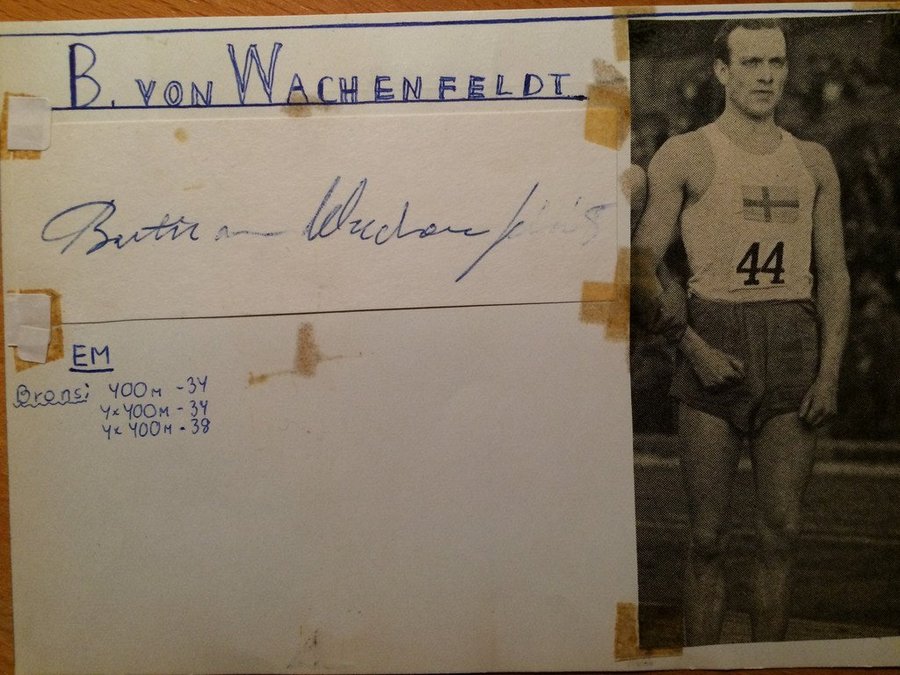 B. VON WACHENFELDT
Bertil von Wachenfeldt
44
EM
Brons: 400M -34
4x400M -34
4x 400M -38